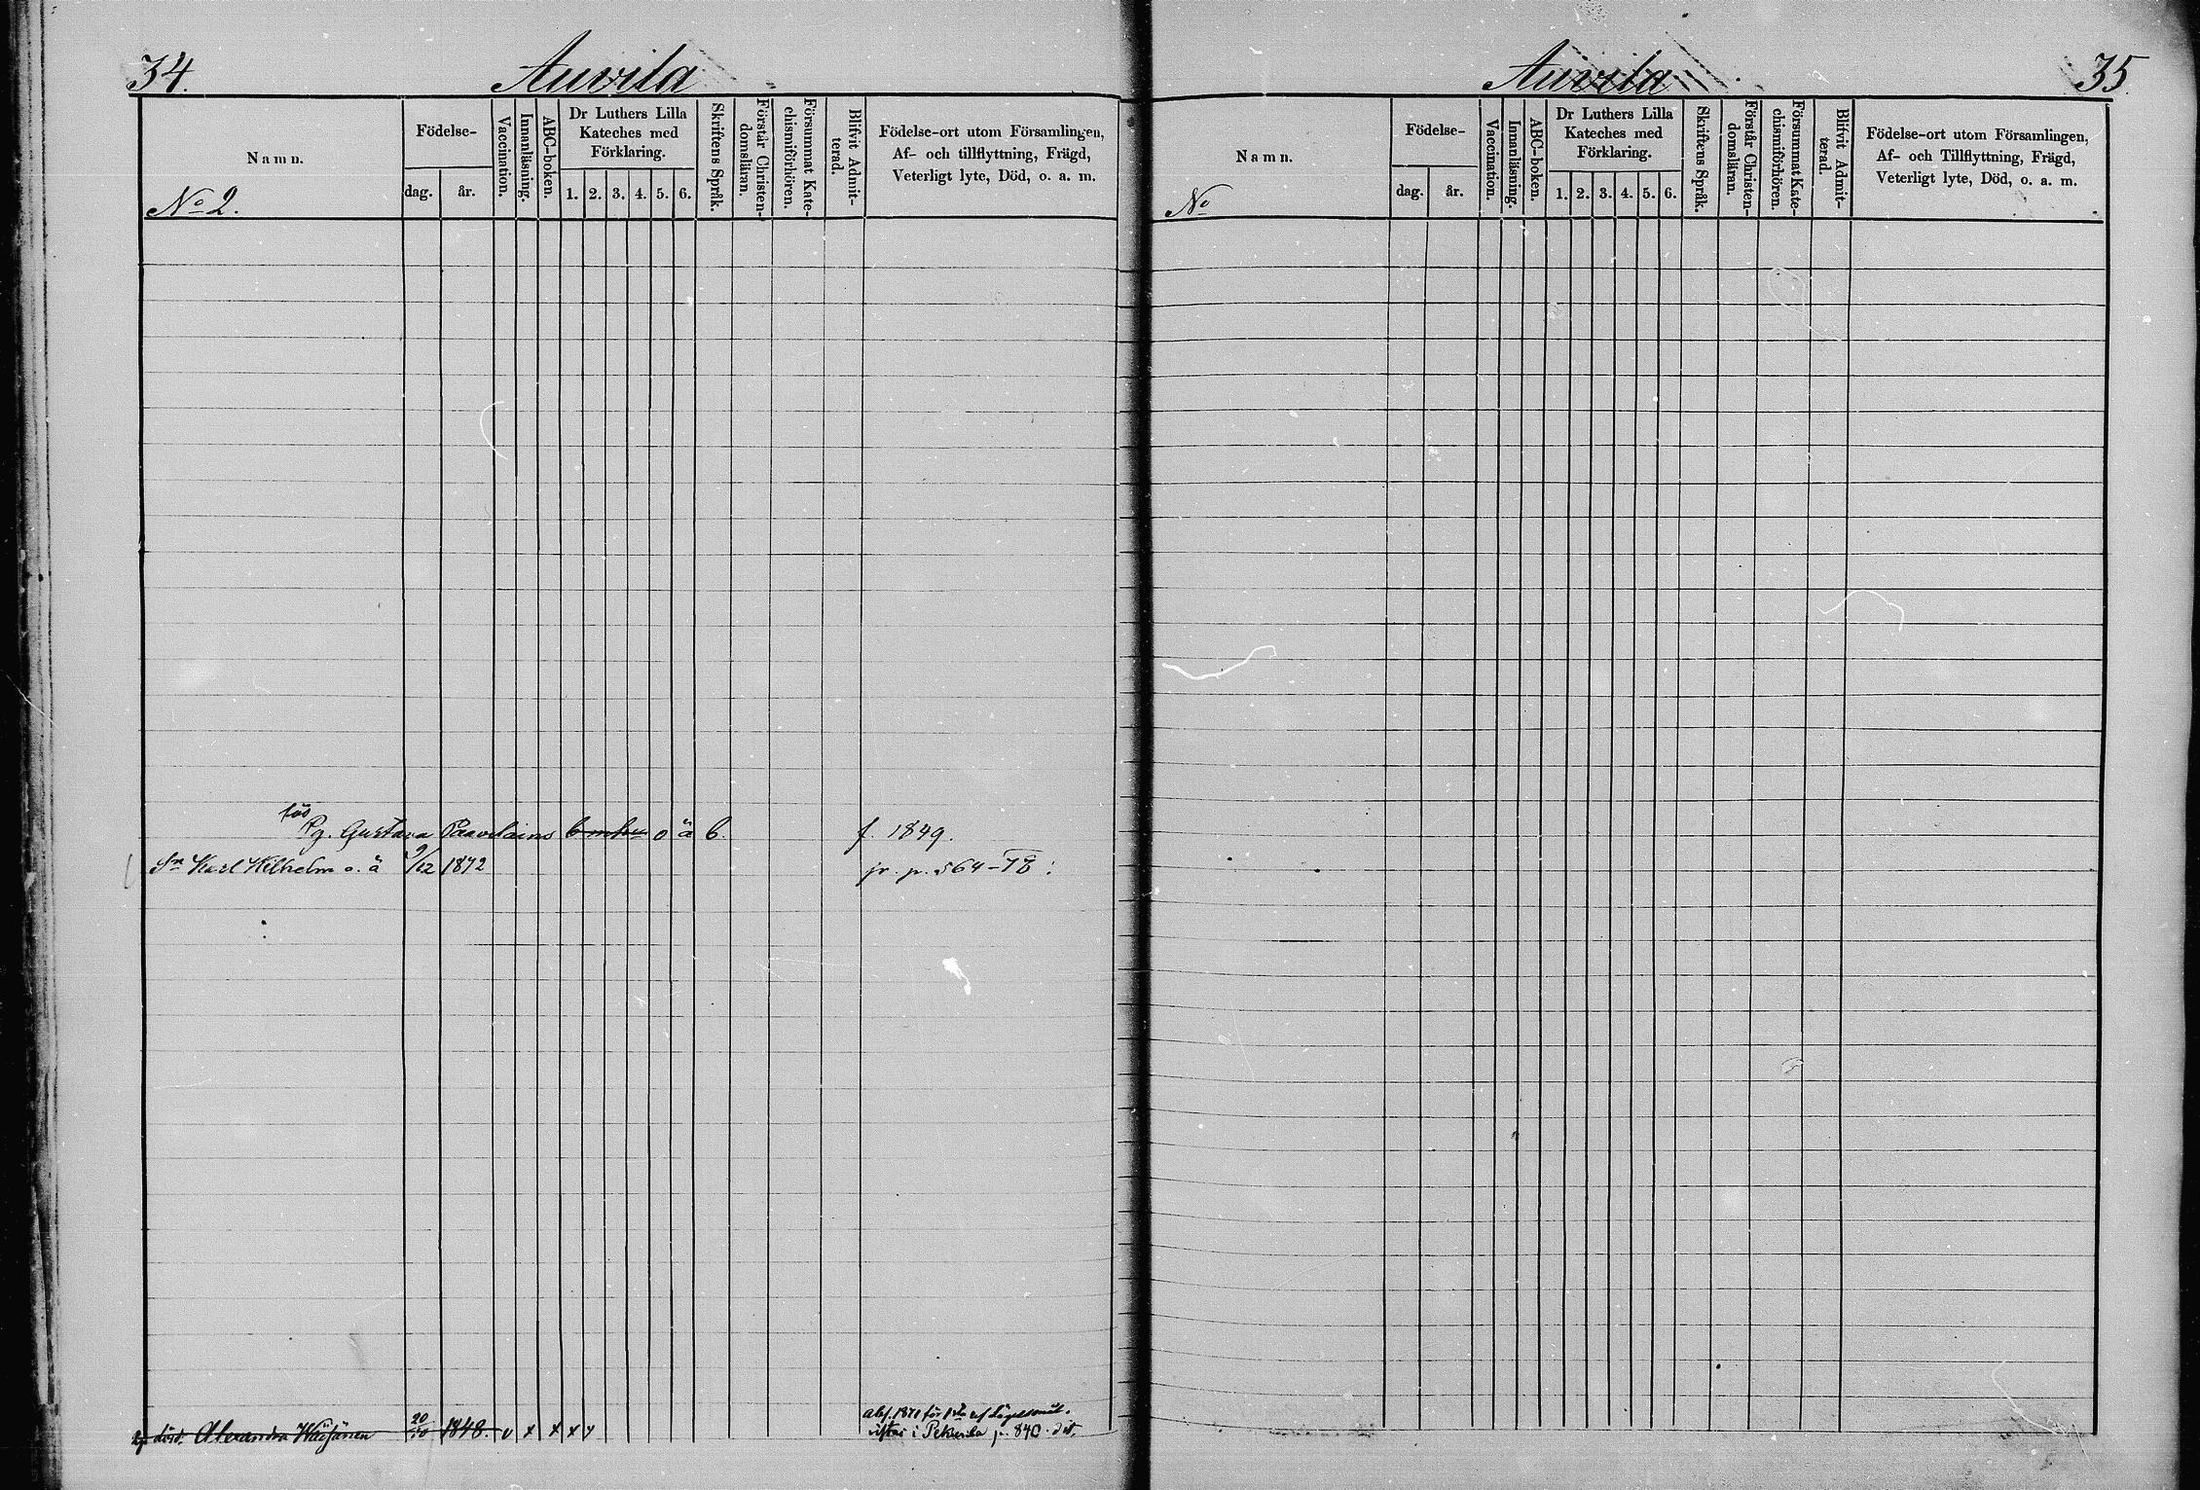 34.
Auvila
Namn.
No 2.
Födelse-
dag.
år.
Vaccination.
Innanläsning.
ABC-boken.
Dr Luthers Lilla
Kateches med
Förklaring.
1. 2. 3. 4. 5. 6.
Skriftens Språk.
Förstår Christen-
domsläran.
Försummat Kate-
chismiförhören.
Blifvit Admit-
terad.
Födelse-ort utom Församlingen,
Af- och tillflyttning, Frägd,
Veterligt lyte, Död, o. a. m.
Pg. Gustava Paavilains o ä b. f. 1849.
Sn Karl Wilhelm o. ä 9/12 1872 jr. p. 564-78:
Alexandra 20/10 1848. v x x x y
1871 för
i Pekurila p. 840.
Auvila
35
Namn.
No
Födelse-
dag.
år.
Vaccination.
Innanläsning.
ABC-boken.
Dr Luthers Lilla
Kateches med
Förklaring.
1. 2. 3. 4. 5. 6.
Skriftens Språk.
Förstår Christen-
domsläran.
Försummat Kate-
chismiförhören.
Blifvit Admit-
terad.
Födelse-ort utom Församlingen,
Af- och Tillflyttning, Frägd,
Veterligt lyte, Död, o. a. m.